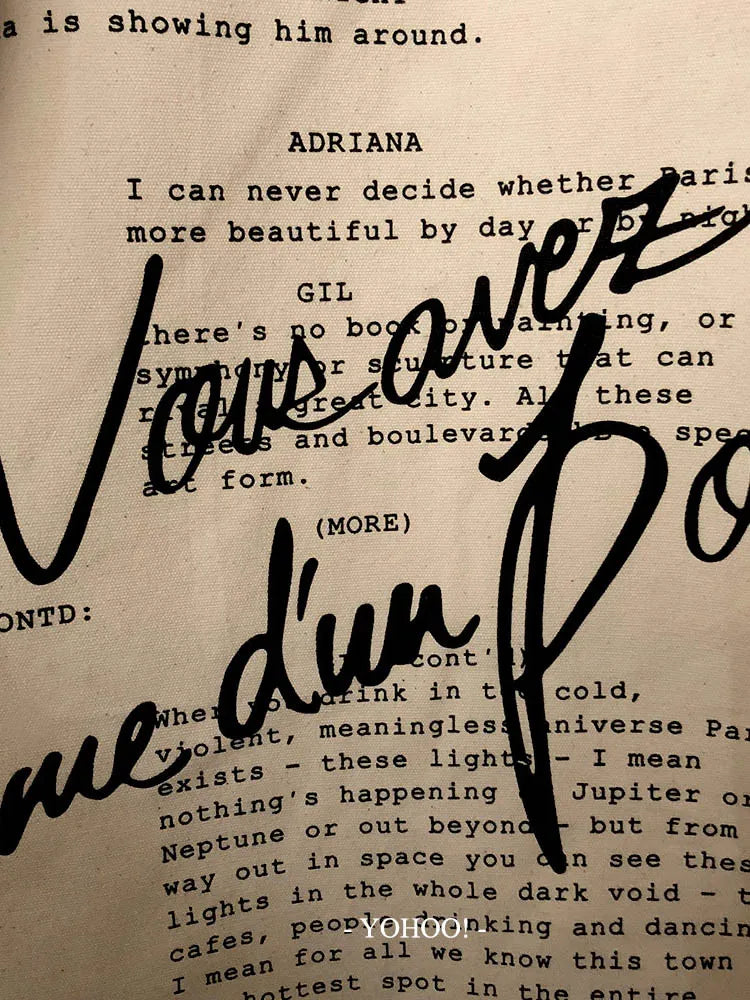 a is showing him around.
ADRIANA
I can never decide whether Paris
more beautiful by day or by nigh
Vous avez
GIL
there's no book or painting, or
symphony or sculpture that can
rival a great city. All these
streets and boulevards spec
act form.
(MORE)
ONTD:
me d'un Po
cont'd)
When you drink in the cold,
violent, meaningless universe Par
exists - these lights - I mean
nothing's happening Jupiter or
Neptune or out beyond - but from
way out in space you can see thes
lights in the whole dark void - t
cafes, people drinking and dancin
- YOHOO! -
I mean for all we know this town
hottest spot in the entire